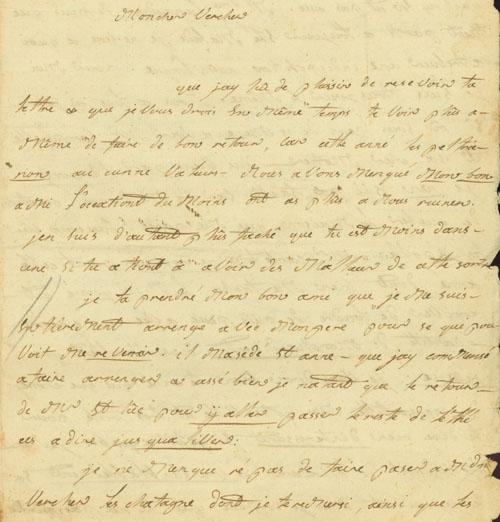 Moncher Vercher
que jay hu de plaisir de resevoir ta
lettre & que je vous drois En Même temps te Voir plus a-
Même de faire de bon retour, Car cette anné les
non au cunne Valeurs- Nous a Vons Menqué Mon bon
aMi L'ocationt du Moins ont as plus a Nous ruiner.
jen suis d'autant plus faché que tu est Moins dans-
une Si tu a tiont à avoir des Malheur de cette sorte
je ta prendré Mon bon amé que je Me suis-
Entierement arrengé a Vec Monpere pour se que pou
Voit Me revenir. il Ma sédé St anne- que jay commensé
a faire arrenger & assé bien je natant que le retour-
de Mr St luc pour y aller passer le reste de
a dire jus qua l'iver:
je ne Menque ré pas de faire paser a Mdm
Vercher les chatagne dont je te remersi, ainsi que les